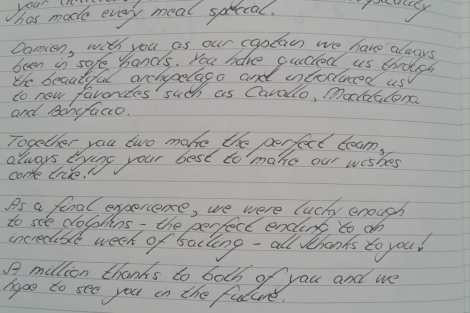 your
has made every meal special.
Damien, with you as our captain we have always
been in safe hands. You have guided us through
the beautiful archipelago and introduced us
to new favorites such as Cavallo, Maddalena
and Bonifacio.
Together you two make the perfect team,
always trying your best to make our wishes
come true.
As a final experience, we were lucky enough
to see dolphins - the perfect ending to an
incredible week of sailing - all thanks to you!
A million thanks to both of you and we
hope to see you in the future.